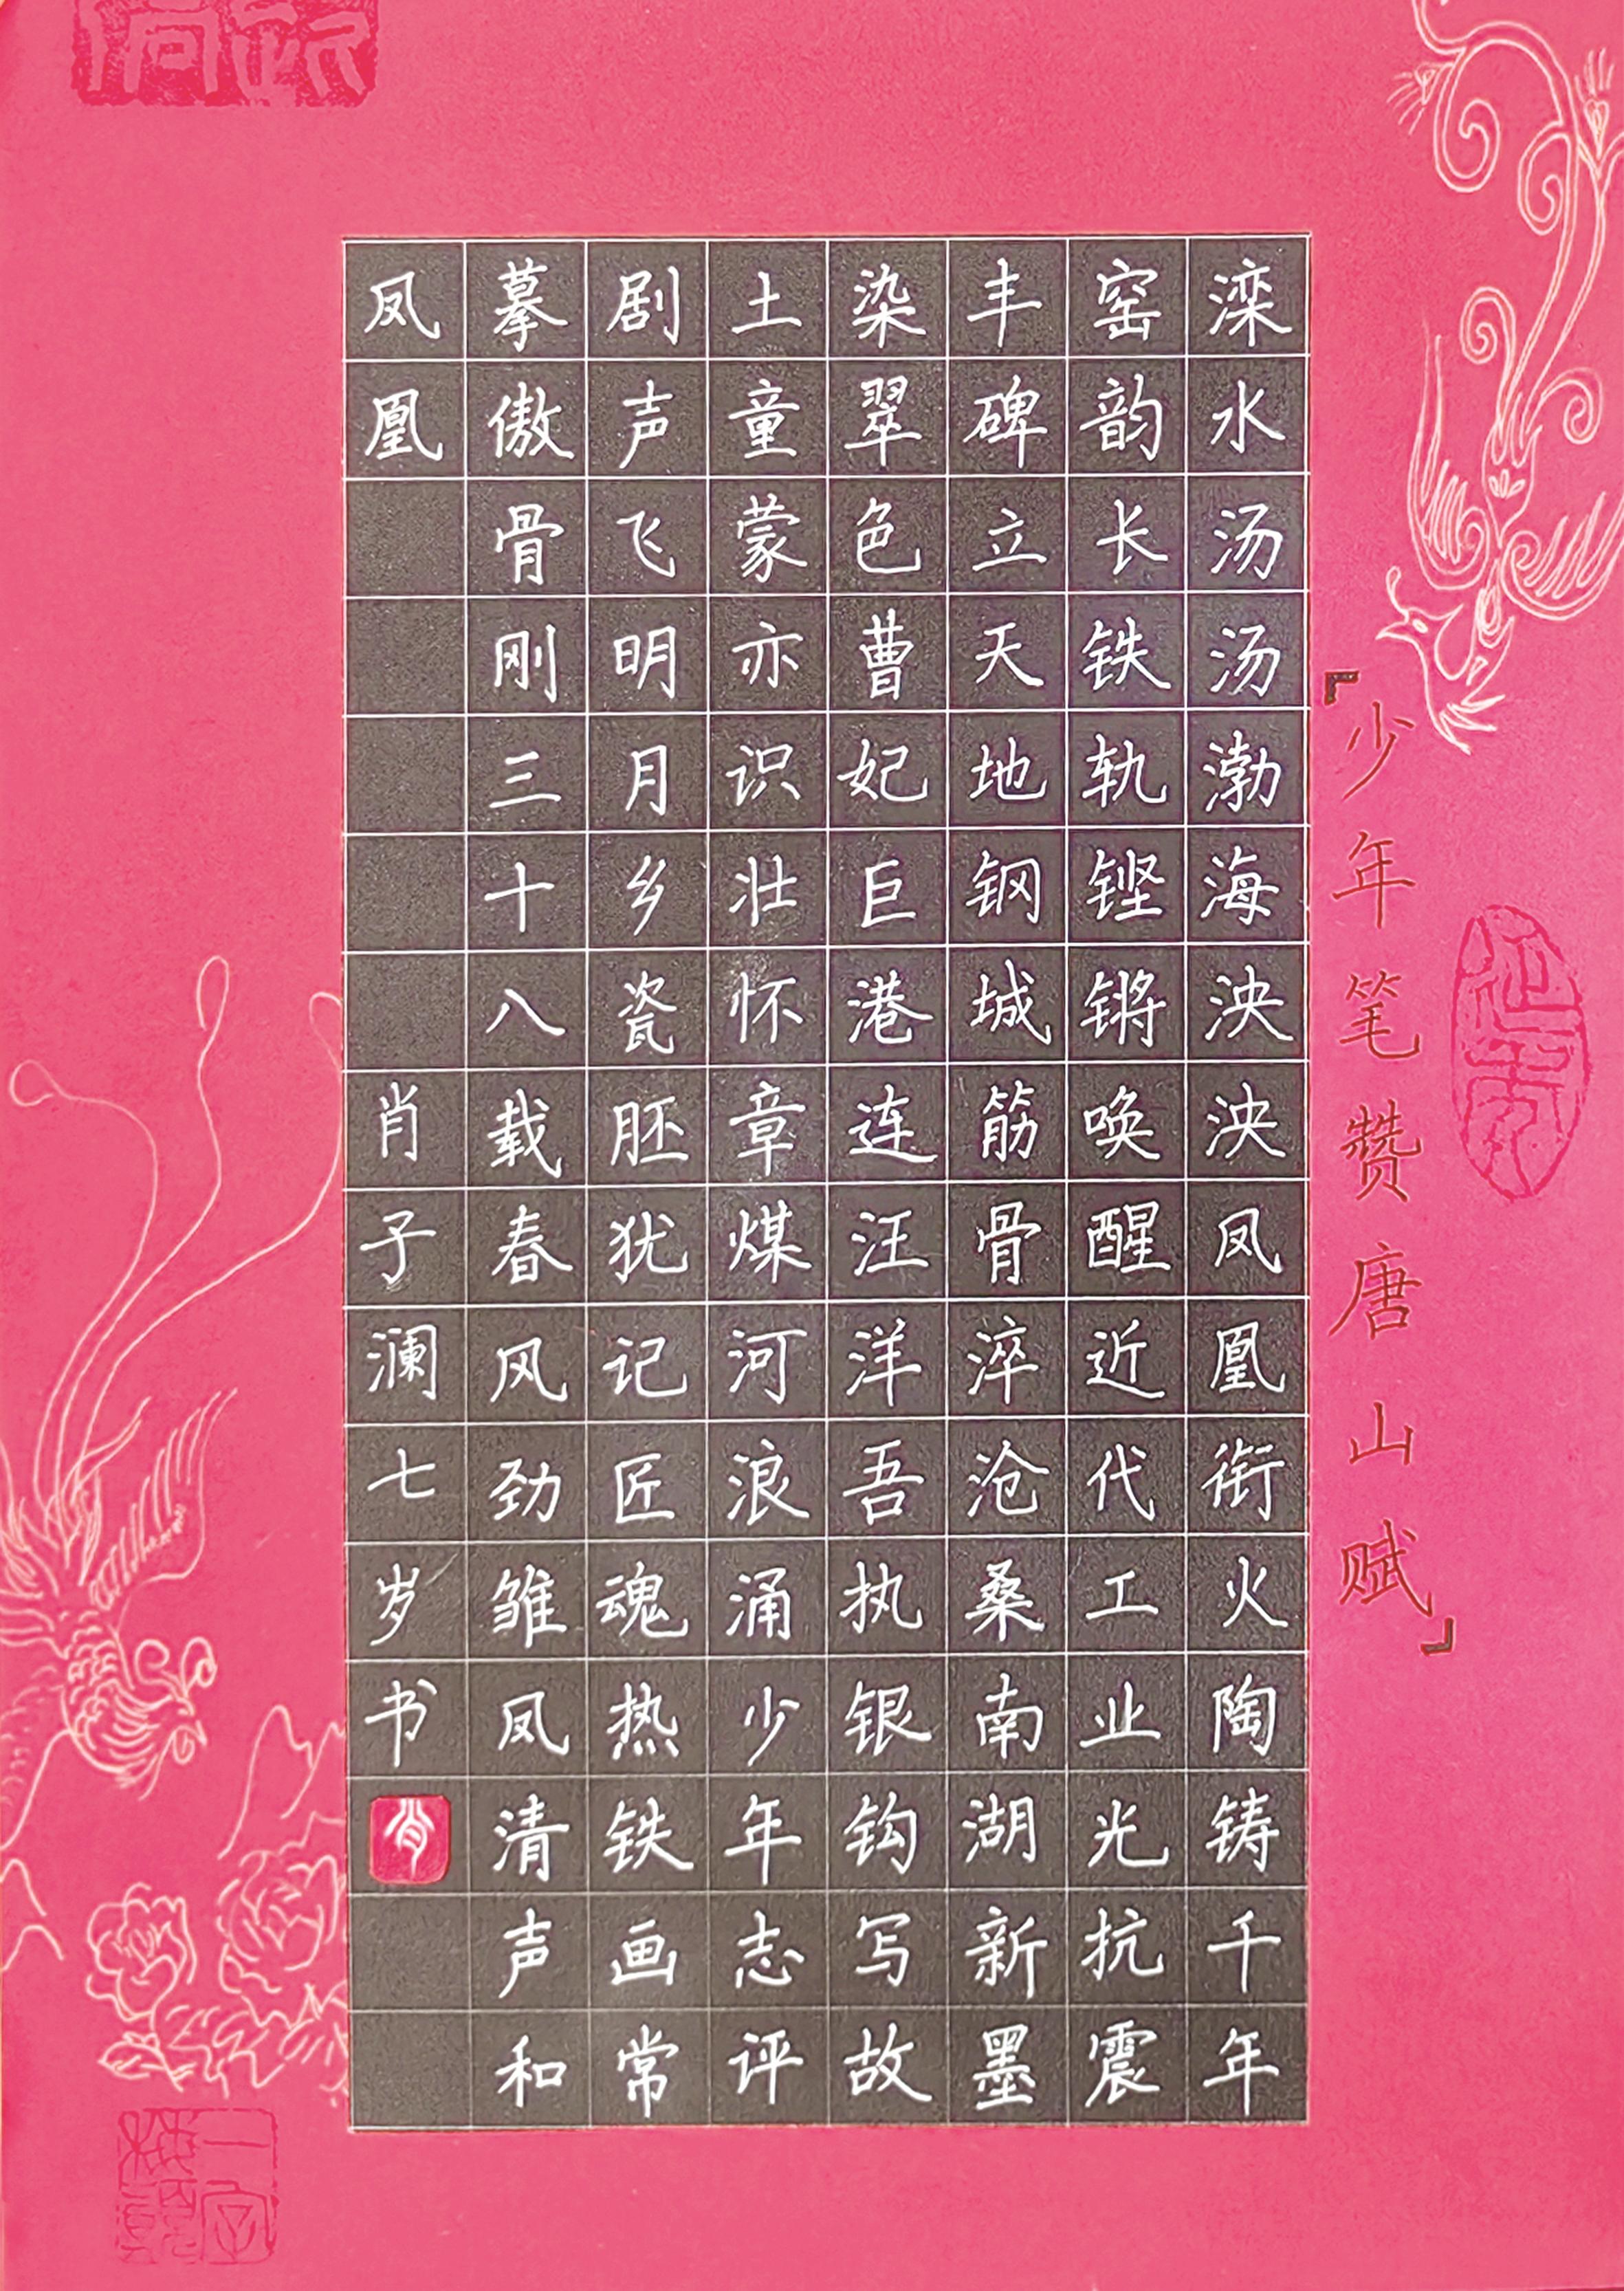 「少年笔赞唐山赋」
滦水汤汤渤海泱泱凤凰衔火陶铸千年
窑韵长铁轨铿锵唤醒近代工业光抗震
丰碑立天地钢城筋骨淬沧桑南湖新墨
染翠色曹妃巨港连汪洋吾执银钩写故
土童蒙亦识壮怀章煤河浪涌少年志评
剧声飞明月乡瓷胚犹记匠魂热铁画常
摹傲骨刚三十八载春风劲雏凤清声和
凤凰
肖子澜七岁书
肖